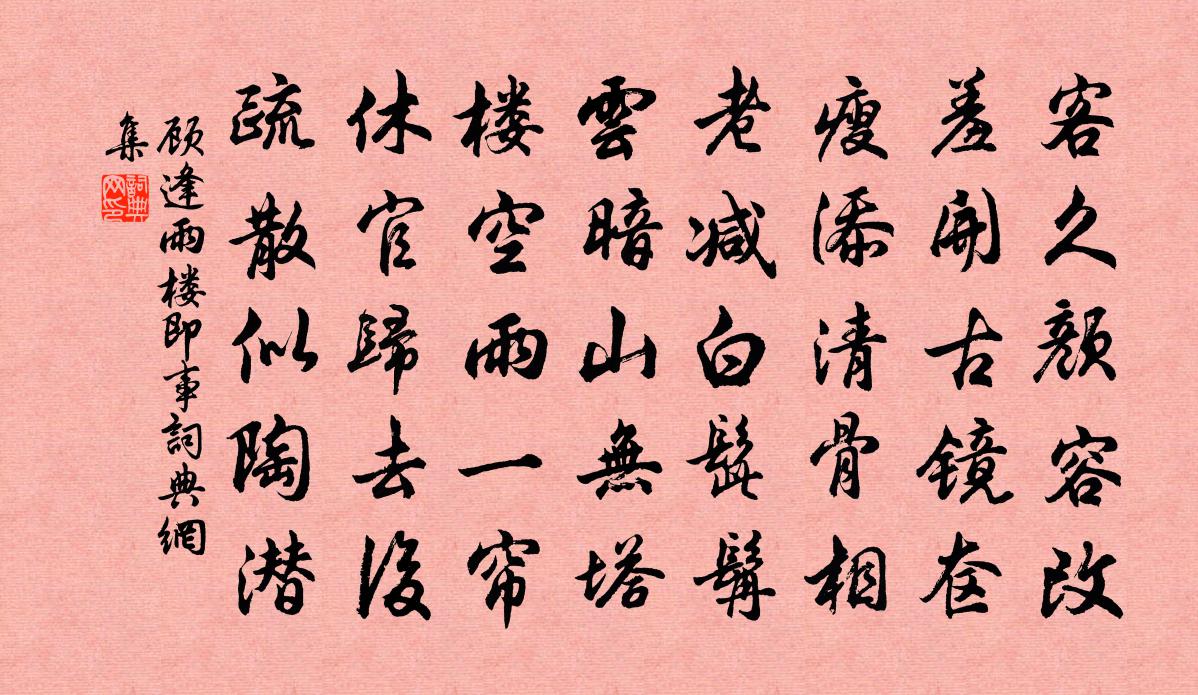 客久顔容改
羞開古镜奁
瘦添清骨相
老减白髭髯
雲暗山無塔
楼空雨一帘
休官歸去後
疏散似陶潜
顾逢雨楼即事詞典網
集
詞典
网印